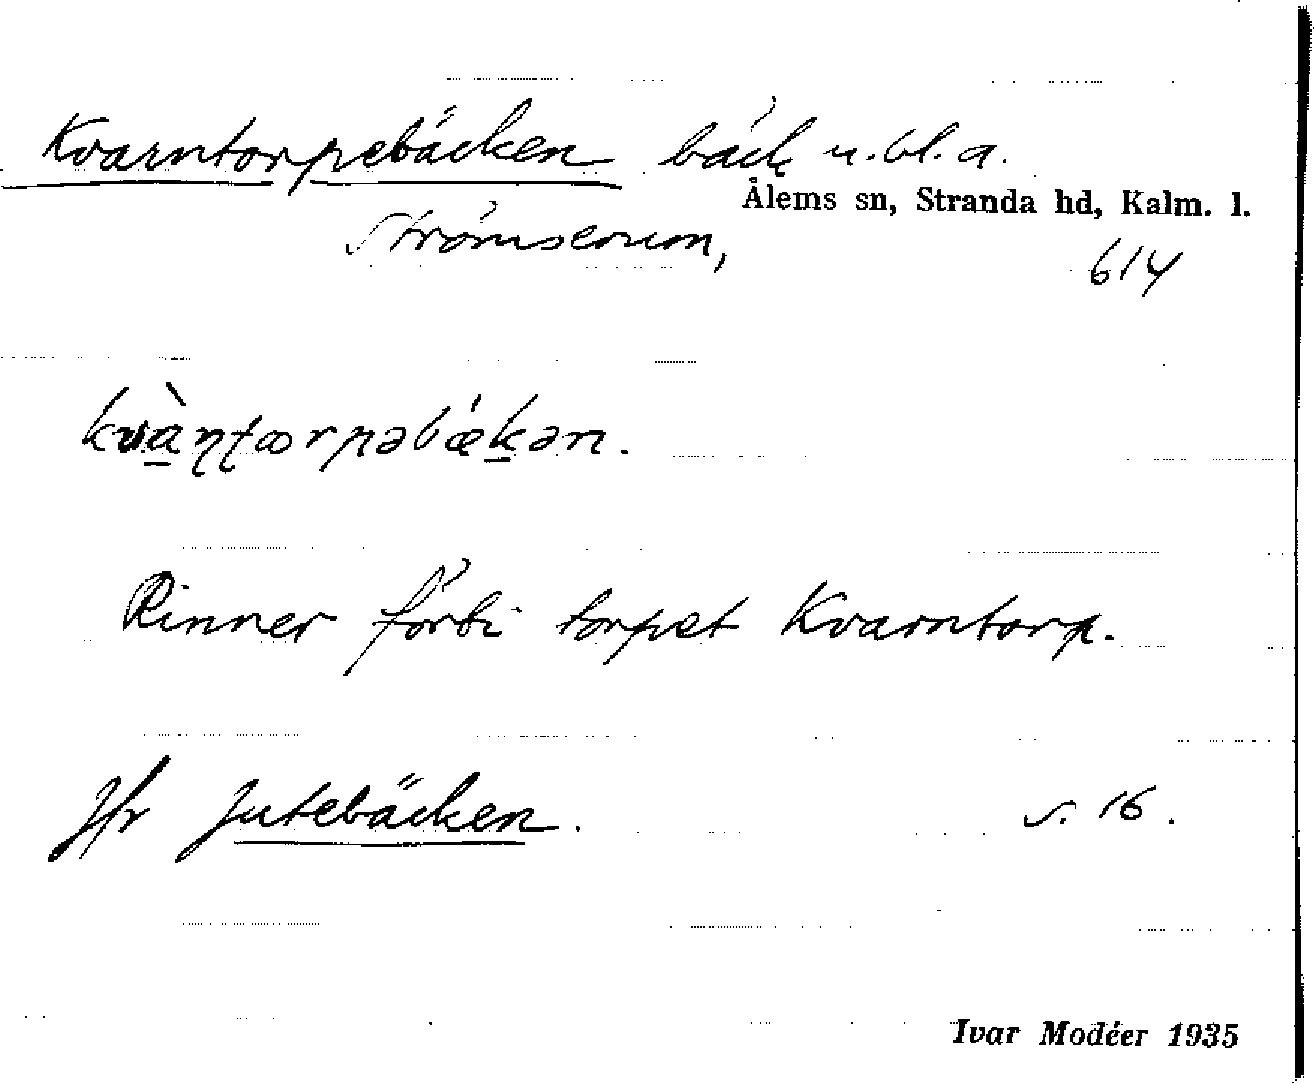 Kvarntorpebäcken bäck u. bl. a.
Ålems sn, Stranda hd, Kalm. l.
Strömserum,
614
kvàɳʈærpəbǽkən.
Rinner förbi torpet Kvarntorp.
Jfr Jutebäcken. s. 16.
Ivar Modéer 1935